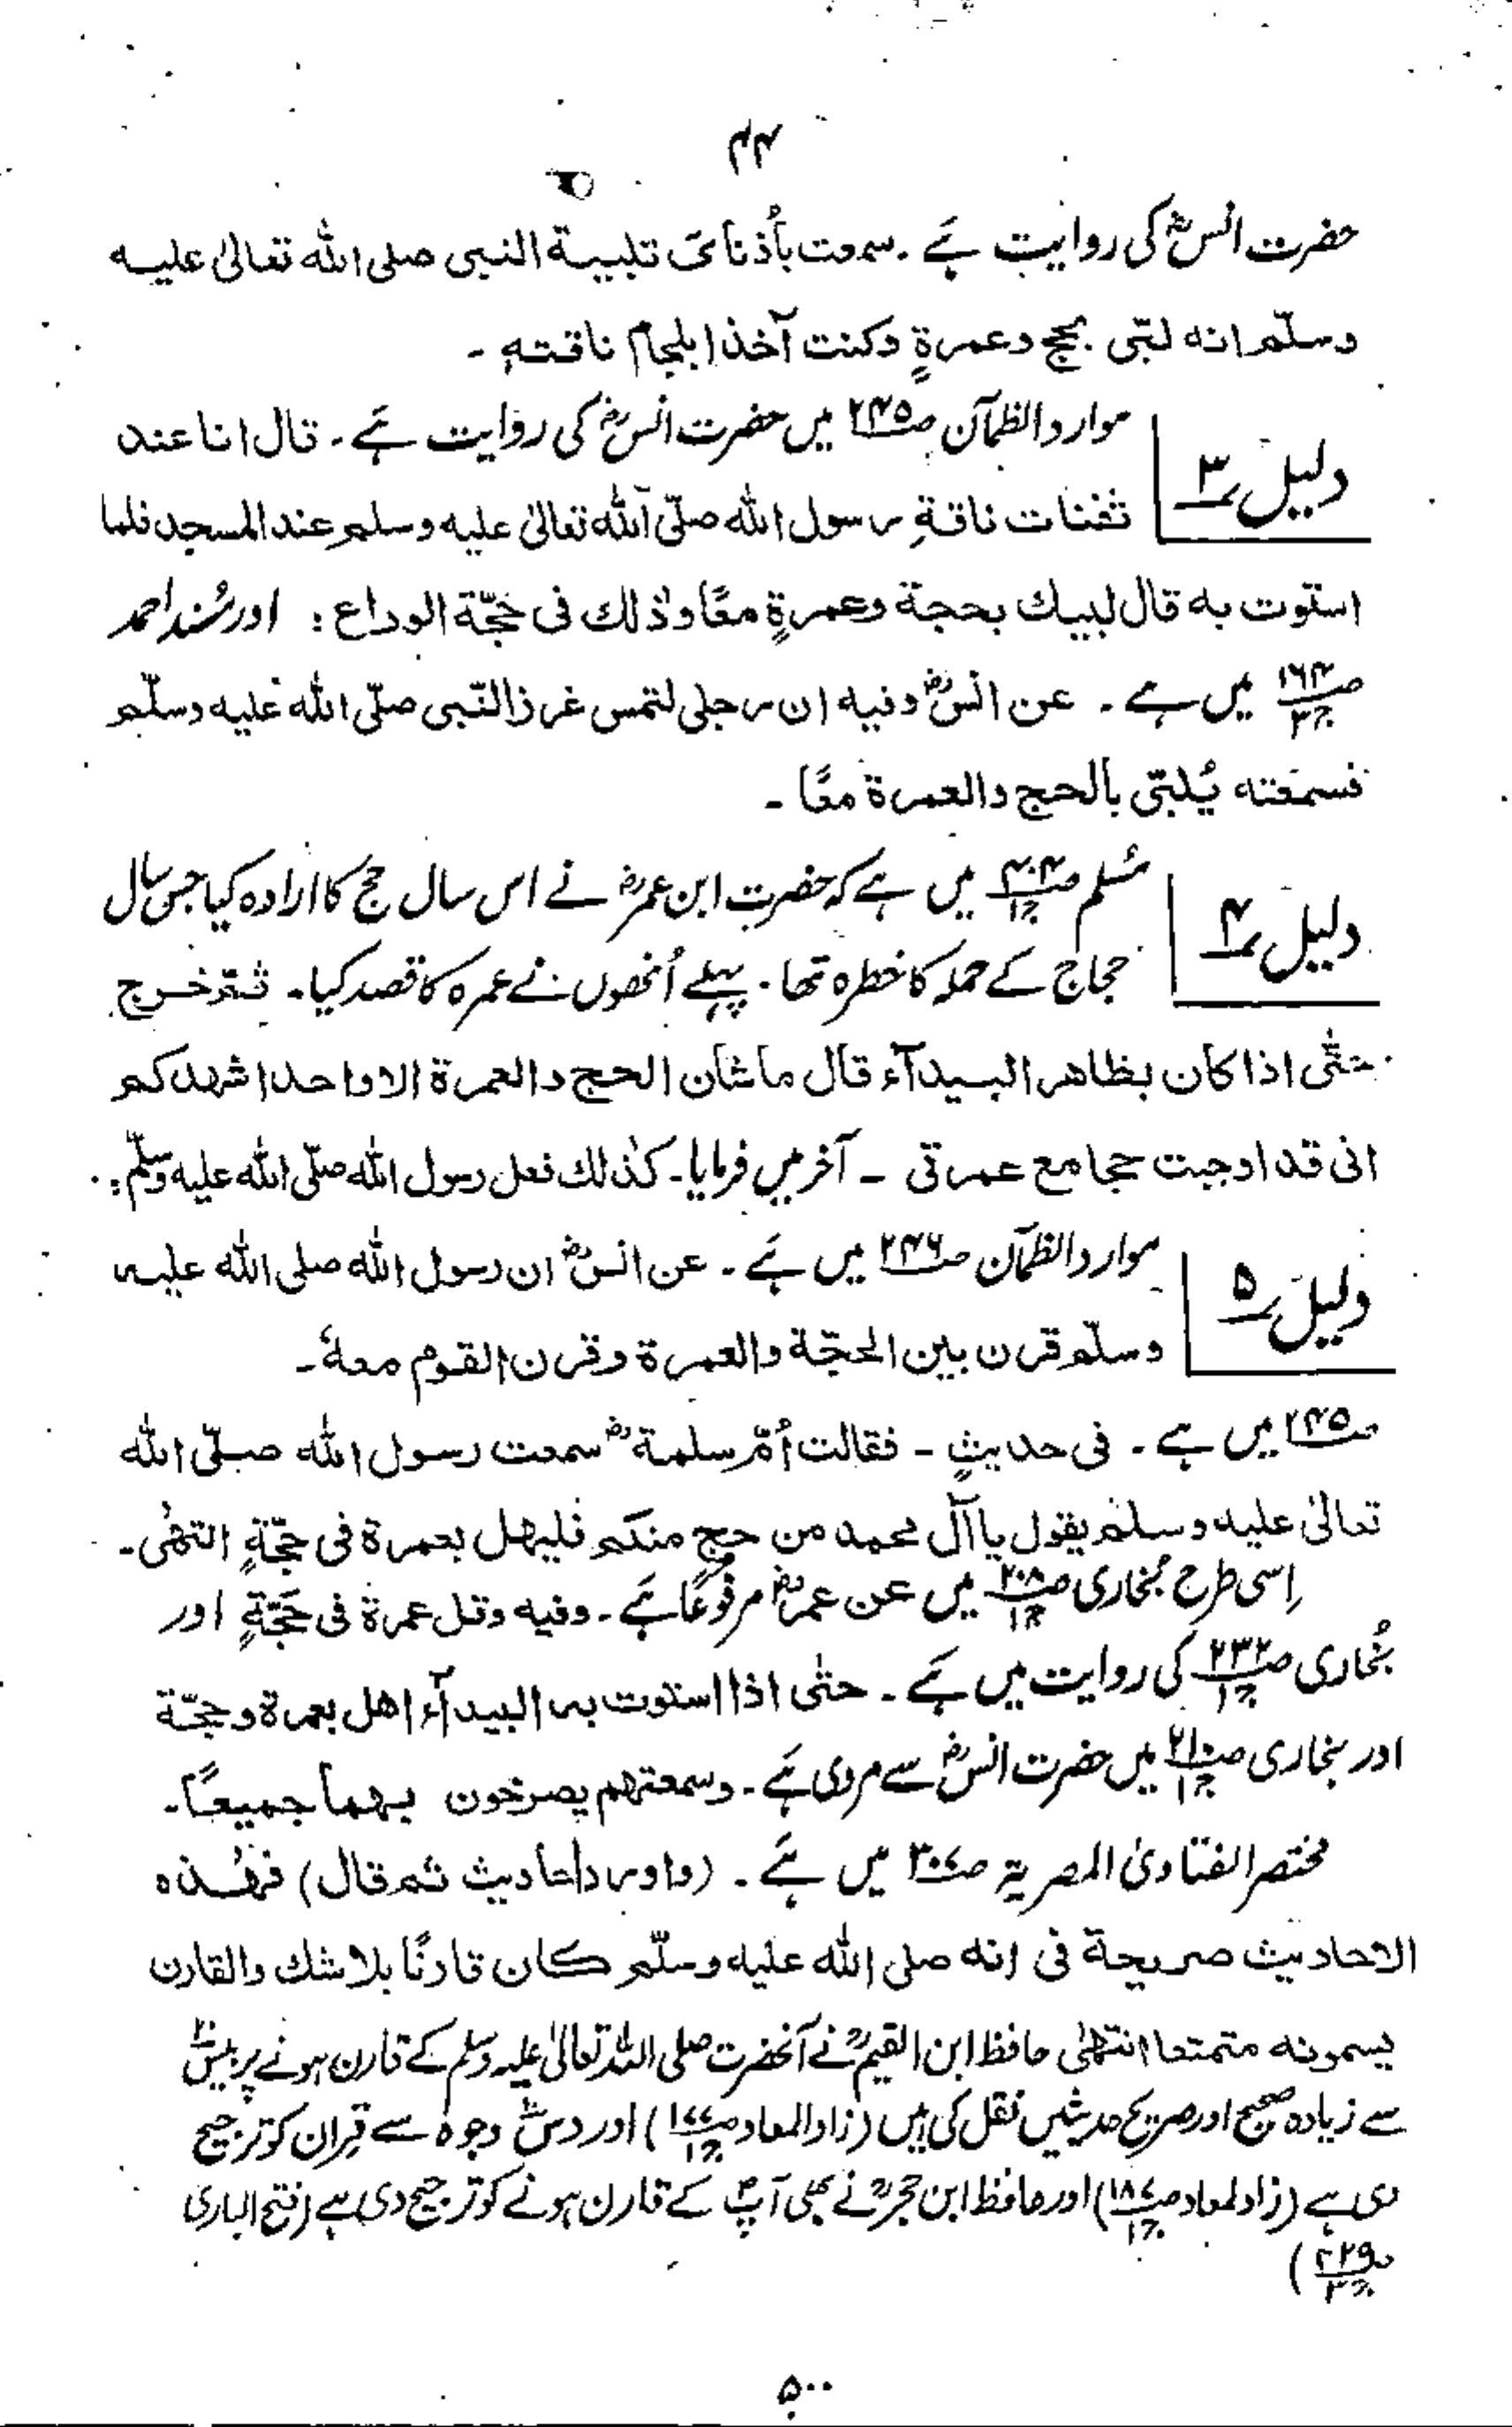 ۴۴
حضرت انسؓ کی روایت ہے ۔ سمعت بأذنائ تلبیة النبی صلی اللہ تعالیٰ علیه
وسلّم انه لبّی بحج وعمرةٍ وکنت آخذا بلجام ناقتهٖ ۔
دلیل ۳ موارد الظمآن ص۲۴۵ میں حضرت انسؓ کی روایت ہے ۔ قال انا عند
ثفنات ناقةِ رسول اللہ صلّی اللہ تعالیٰ علیه وسلم عند المسجد فلما
استوت به قال لبیك بحجة وعمرةٍ معًا وذلك فی حَجّة الوداع : اور مُسند احمد
ص۱۶۴ ج۳ میں ہے ۔ عن انسؓ وفیه ان رجلی لتمس غرز النّبی صلّی اللہ علیه وسلّم
فسمعته یُلبّی بالحج والعمرة معًا ۔
دلیل ۴ مُسلم ص۴۰۴ ج۱ میں ہے کہ حضرت ابن عمرؓ نے اس سال حج کا ارادہ کیا جس سال
حجاج کے حملہ کا خطرہ تھا ۔ پہلے اُنھوں نے عمرہ کا قصد کیا ۔ ثمّ خرج
حتّٰی اذا کان بظاهر البیدآء قال ما شأن الحج والعمرة الا واحد اشهدکم
انی قد اوجبت حجا مع عمرتی ۔ آخر میں فرمایا ۔ کذلك فعل رسول اللہ صلّی اللہ علیه وسلّم :
دلیل ۵ موارد الظمآن ص۲۴۶ میں ہے ۔ عن انسؓ ان رسول اللہ صلی اللہ علیه
وسلّم قرن بین الحجّة والعمرة وقرن القوم معهٗ ۔
ص۲۴۵ میں ہے ۔ فی حدیثٍ ۔ فقالت اُمّ سلمةؓ سمعت رسول اللہ صلّی اللہ
تعالیٰ علیه وسلم یقول یا آل محمد من حج منکم فلیهل بعمرة فی حَجّةٍ انتهٰی ۔
اِسی طرح بُخاری ص۲۰۸ ج۱ میں عن عمرؓ مرفوعًا ہے ۔ وفیه وقل عمرة فی حَجّةٍ اور
بُخاری ص۲۳۲ ج۱ کی روایت میں ہے ۔ حتٰی اذا استوت به البیدآء اهل بعمرة وحجّة
اور بخاری ص۲۱۰ ج۱ میں حضرت انسؓ سے مروی ہے ۔ وسمعتهم یصرخون بهما جمیعًا ۔
مختصر الفتاویٰ المصریة ص۳۰۷ میں ہے ۔ (واورد احادیث ثم قال) فهٰذه
الاحادیث صریحة فی انه صلی اللہ علیه وسلّم کان قارنًا بلا شك والقارن
یسمونه متمتعا انتهٰی حافظ ابن القیمؒ نے آنحضرت صلی اللہ تعالیٰ علیہ وسلم کے قارن ہونے پر بیس۲۰
سے زیادہ صحیح اور صریح حدیثیں نقل کی ہیں (زاد المعاد ص۱۷۷ ج۱) اور دس۱۰ وجوہ سے قِران کو ترجیح
دی ہے (زاد لمعاد ص۱۸۷ ج۱) اور حافظ ابن حجرؒ نے بھی آپؐ کے قارن ہونے کو ترجیح دی ہے (فتح الباری
ص۲۲۹ ج۳)
۵۰۰